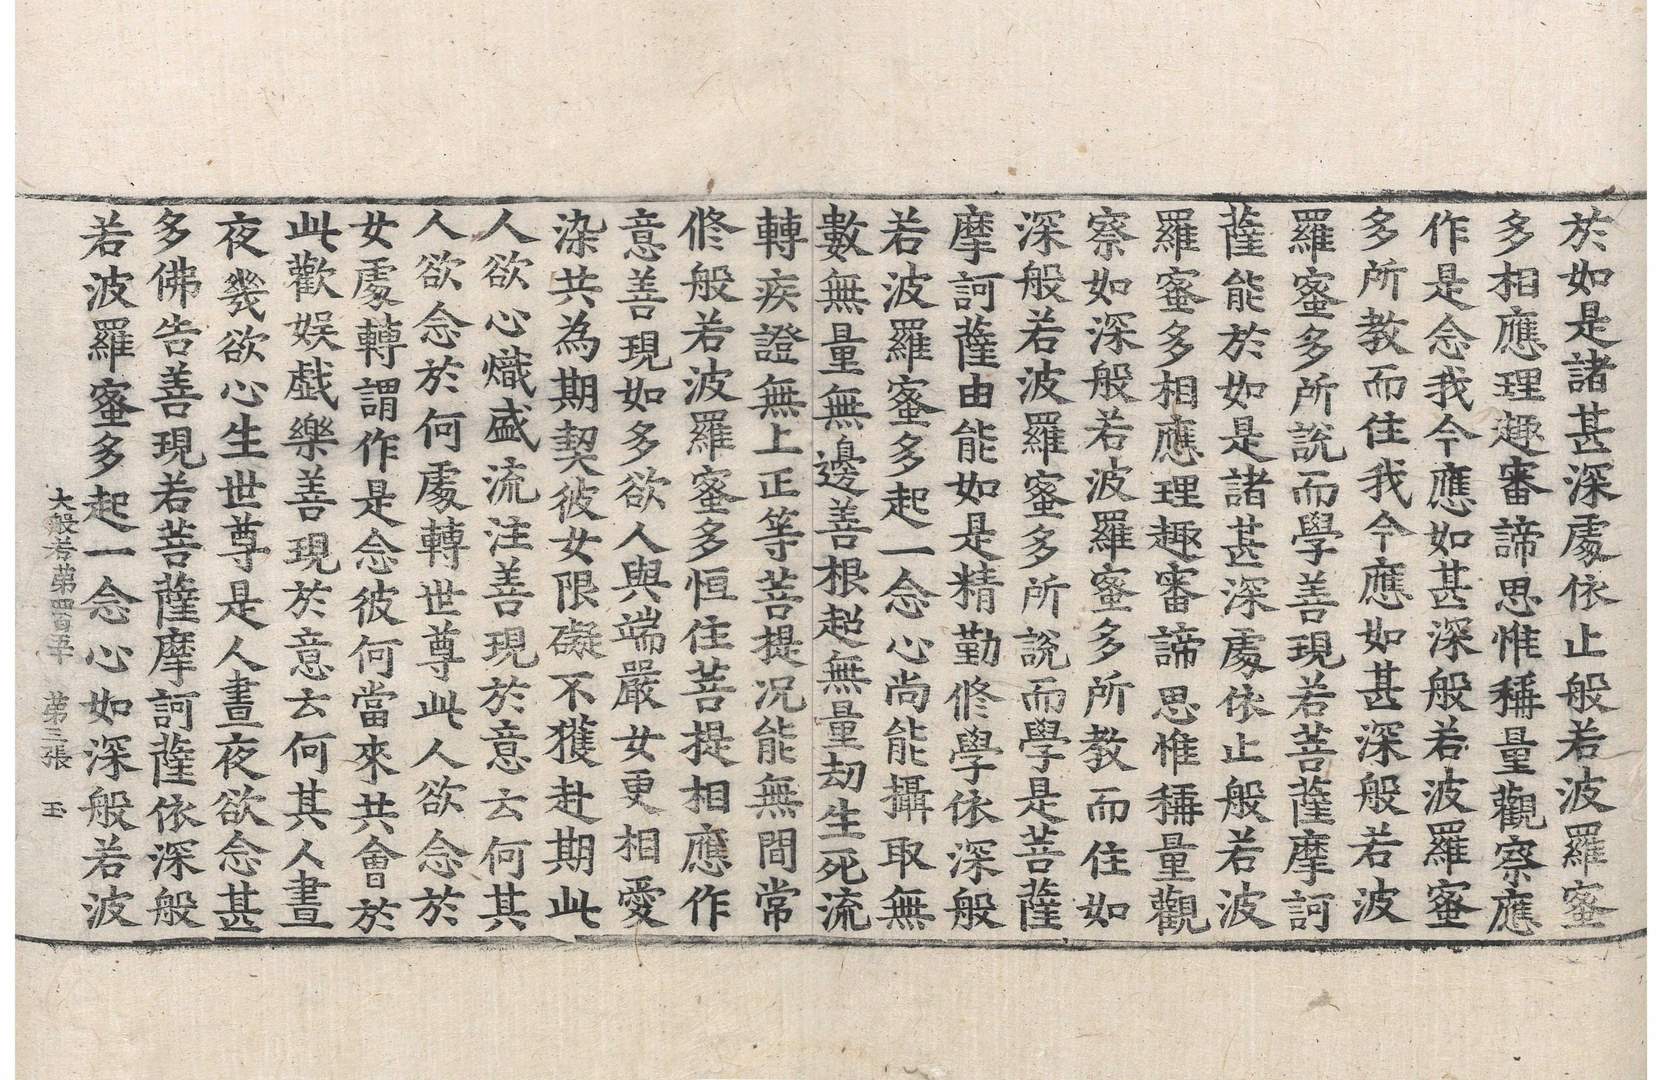 於如是諸甚深處依止般若波羅蜜
多相應理趣審諦思惟稱量觀察應
作是念我今應如甚深般若波羅蜜
多所教而住我今應如甚深般若波
羅蜜多所說而學善現若菩薩摩訶
薩能於如是諸甚深處依止般若波
羅蜜多相應理趣審諦思惟稱量觀
察如深般若波羅蜜多所教而住如
深般若波羅蜜多所說而學是菩薩
摩訶薩由能如是精勤修學依深般
若波羅蜜多起一念心尚能攝取無
數無量無邊善根超無量劫生死流
轉疾證無上正等菩提況能無間常
修般若波羅蜜多恒住菩提相應作
意善現如多欲人與端嚴女更相愛
染共為期契彼女限礙不獲赴期此
人欲心熾盛流注善現於意云何其
人欲念於何處轉世尊此人欲念於
女處轉謂作是念彼何當來共會於
此歡娛戲樂善現於意云何其人晝
夜幾欲心生世尊是人晝夜欲念甚
多佛告善現若菩薩摩訶薩依深般
若波羅蜜多起一念心如深般若波
大般若第四百五十 第三張 玉